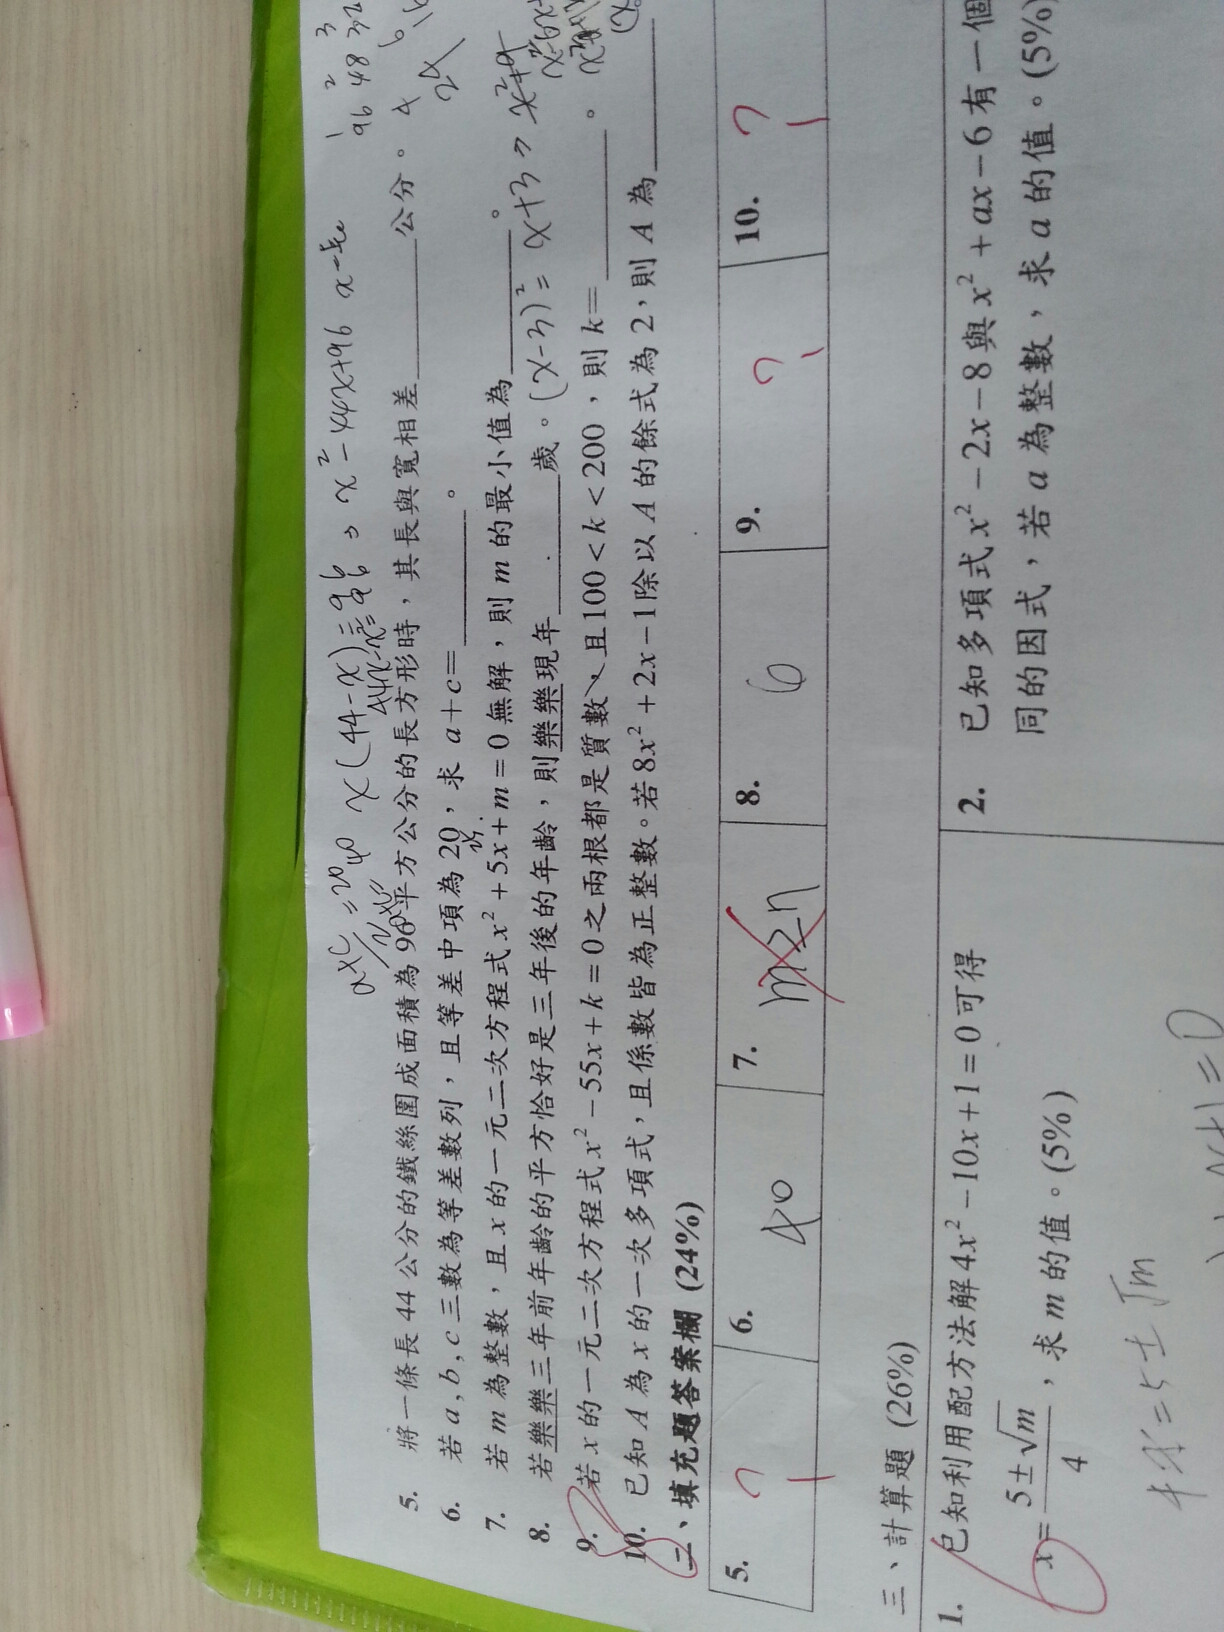 a+c/2=20
40
x(44-x)=96
x²-44x+96
5. 將一條長44公分的鐵絲圍成面積為96平方公分的長方形時，其長與寬相差______公分。
6. 若a,b,c三數為等差數列，且等差中項為20，求a+c=______。
7. 若m為整數，且x的一元二次方程式x²+5x+m=0無解，則m的最小值為______。
8. 若樂樂三年前年齡的平方恰好是三年後的年齡，則樂樂現年______歲。(x-3)²=x+3
9. 若x的一元二次方程式x²-55x+k=0之兩根都是質數、且100<k<200，則k=______。
10. 已知A為x的一次多項式，且係數皆為正整數。若8x²+2x-1除以A的餘式為2，則A為______
二、填充題答案欄 (24%)
5. ? 6. 40 7. 8. 6 9. ? 10. ?
三、計算題 (26%)
1. 已知利用配方法解4x²-10x+1=0可得
x=(5±√m)/4，求m的值。(5%)
4x=5±√m
2. 已知多項式x²-2x-8與x²+ax-6有一個
同的因式，若a為整數，求a的值。(5%)